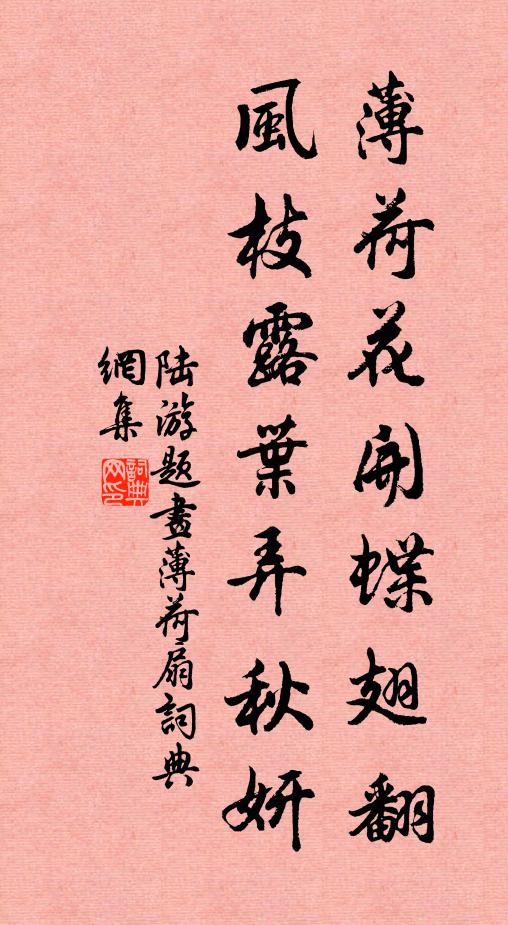 薄荷花開蝶翅翻
風枝露葉弄秋妍
陆游题畫薄荷扇詞典
網集
詞典网印